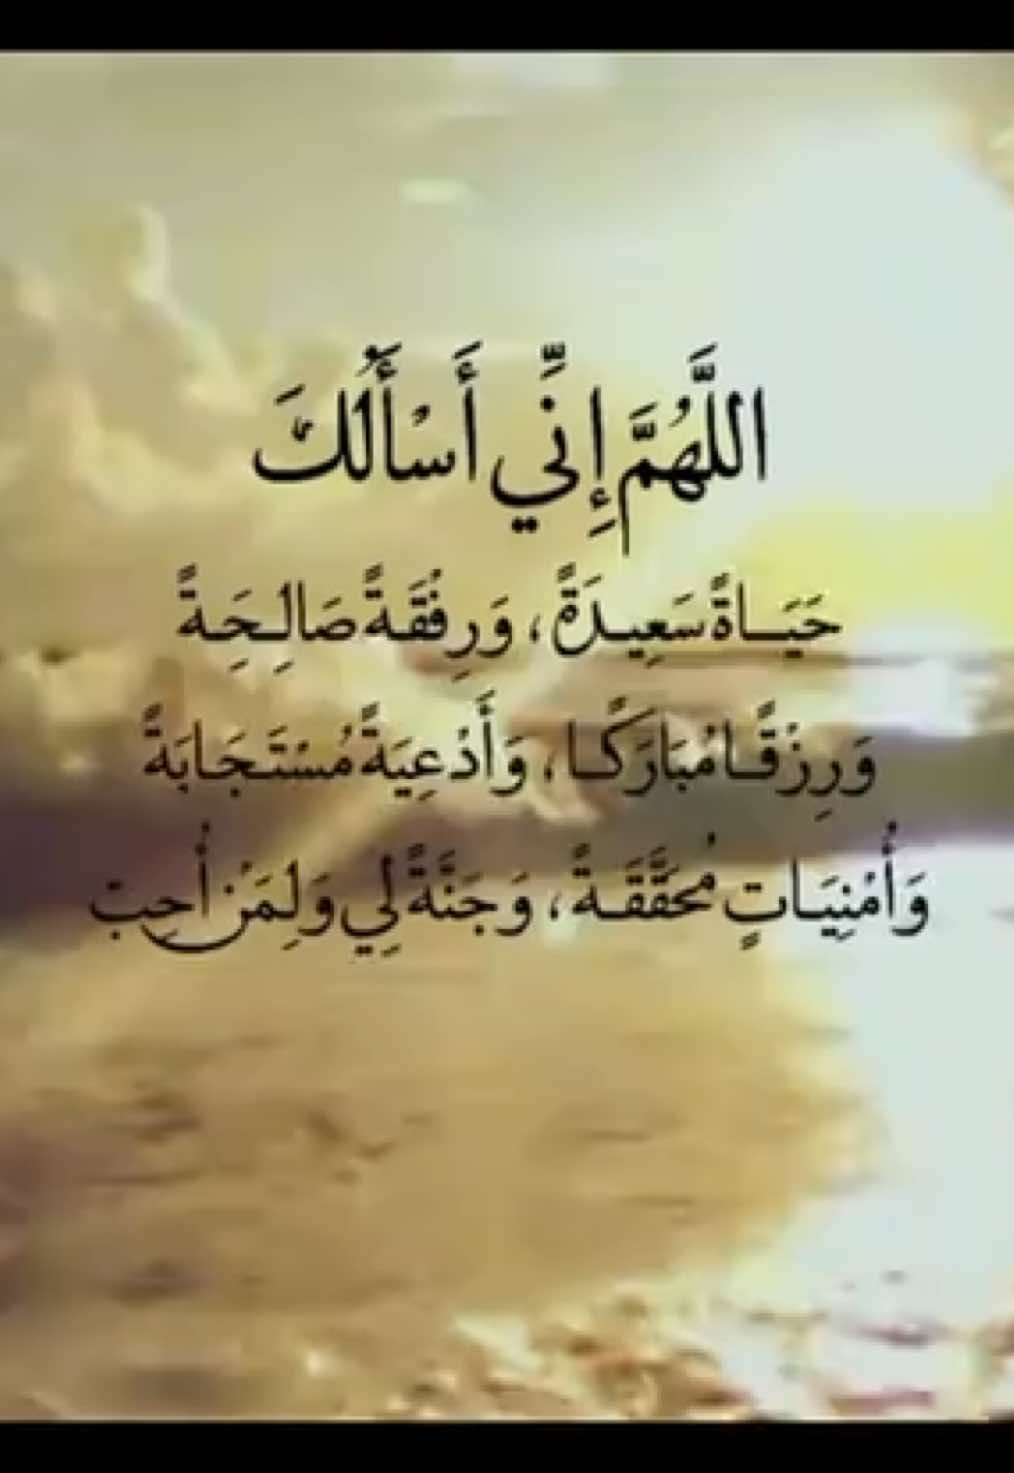 اللَّهُمَّ إِنِّي أَسْأَلُكَ
حَيَاةً سَعِيدَةً، وَرِفْقَةً صَالِحَةً
وَرِزْقًا مُبَارَكًا، وَأَدْعِيَةً مُسْتَجَابَةً
وَأُمْنِيَاتٍ مُحَقَّقَةً، وَجَنَّةً لِي وَلِمَنْ أُحِبّ